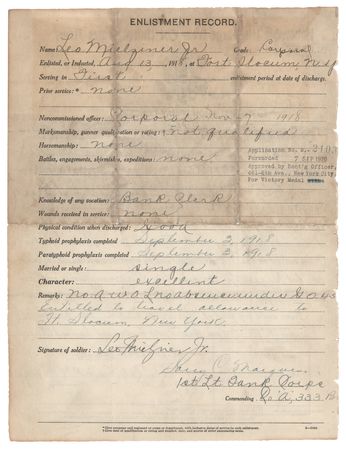 ENLISTMENT RECORD.
Name: Leo Mielziner Jr Grade: Corporal
Enlisted, or Inducted, Aug 13, 1918, at Fort Slocum N.Y
Serving in First enlistment period at date of discharge.
Prior service:* none
Noncommissioned officer: Corporal Nov 7 1918
Marksmanship, gunner qualification or rating:† Not qualified
Horsemanship: none
Battles, engagements, skirmishes, expeditions: none
Application No. M.
Forwarded 7 SEP 1920
Approved by Recrt'g Officer,
461-8th Ave., New York City,
For Victory Medal
Knowledge of any vocation: Bank Clerk
Wounds received in service: none
Physical condition when discharged: Good
Typhoid prophylaxis completed September 2, 1918
Paratyphoid prophylaxis completed September 2, 1918
Married or single: single
Character: excellent
Remarks: No A W O L no absence under G O 45
Entitled to travel allowance to
Ft. Slocum, New York.
Signature of soldier: Leo Mielziner Jr.
1st Lt Tank Corps
Commanding Co A, 333 Bn